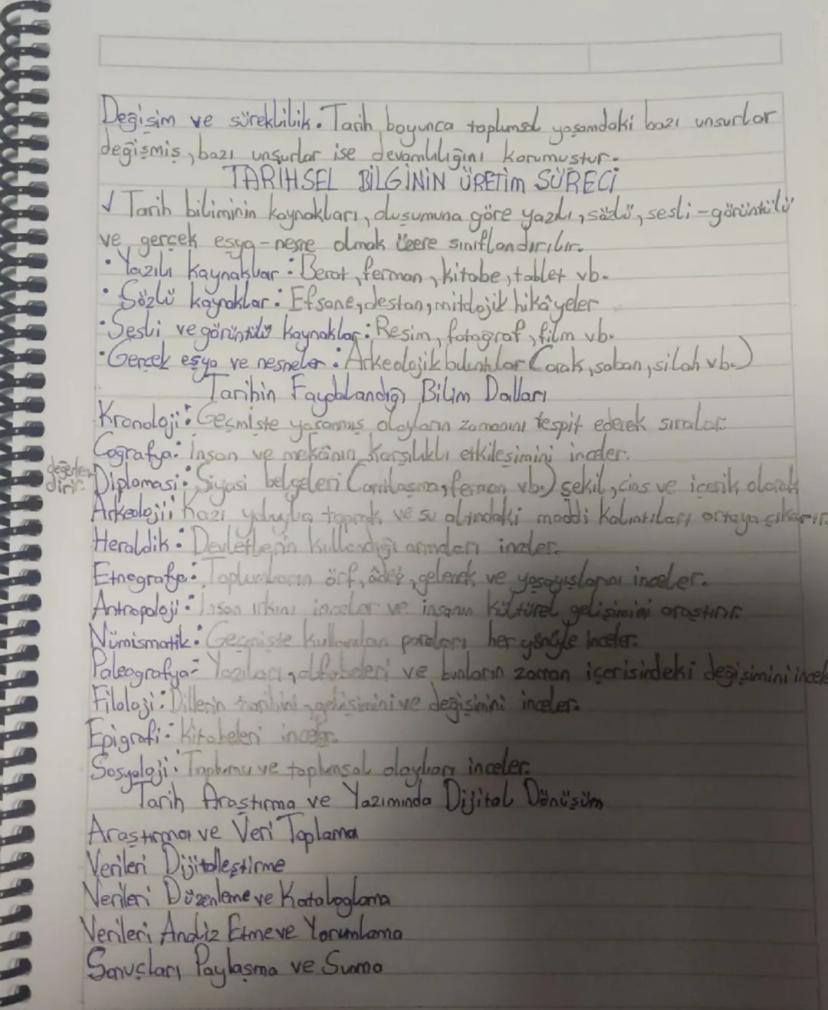 Değişim ve süreklilik. Tarih boyunca toplumsal yaşamdaki bazı unsurlar
değişmiş, bazı unsurlar ise devamlılığını korumuştur.
TARİHSEL BİLGİNİN ÜRETİM SÜRECİ
√ Tarih biliminin kaynakları, oluşumuna göre yazılı, sözlü, sesli-görüntülü
ve gerçek eşya-nesne olmak üzere sınıflandırılır.
• Yazılı kaynaklar: Berat, ferman, kitabe, tablet vb.
• Sözlü kaynaklar: Efsane, destan, mitolojik hikâyeler
• Sesli ve görüntülü kaynaklar: Resim, fotoğraf, film vb.
• Gerçek eşya ve nesneler: Arkeolojik buluntular (orak, saban, silah vb.)
Tarihin Faydalandığı Bilim Dalları
Kronoloji: Geçmişte yaşanmış olayların zamanını tespit ederek sıralar.
Coğrafya: İnsan ve mekânın karşılıklı etkileşimini inceler.
Diplomasi: Siyasi belgeleri (antlaşma, ferman vb.) şekil, cins ve içerik olarak
değerlendirir.
Arkeoloji: Kazı yoluyla toprak ve su altındaki maddi kalıntıları ortaya çıkarır.
Heraldik: Devletlerin kullandığı armaları inceler.
Etnografya: Toplumların örf, âdet, gelenek ve yaşayışlarını inceler.
Antropoloji: İnsan ırkını inceler ve insanın kültürel gelişimini araştırır.
Nümismatik: Geçmişte kullanılan paraları her yönüyle inceler.
Paleografya: Yazıları, alfabeleri ve bunların zaman içerisindeki değişimini incele
Filoloji: Dillerin tarihini, gelişimini ve değişimini inceler.
Epigrafi: Kitabeleri inceler.
Sosyoloji: Toplumu ve toplumsal olayları inceler.
Tarih Araştırma ve Yazımında Dijital Dönüşüm
Araştırma ve Veri Toplama
Verileri Dijitalleştirme
Verileri Düzenleme ve Kataloglama
Verileri Analiz Etme ve Yorumlama
Sonuçları Paylaşma ve Sunma